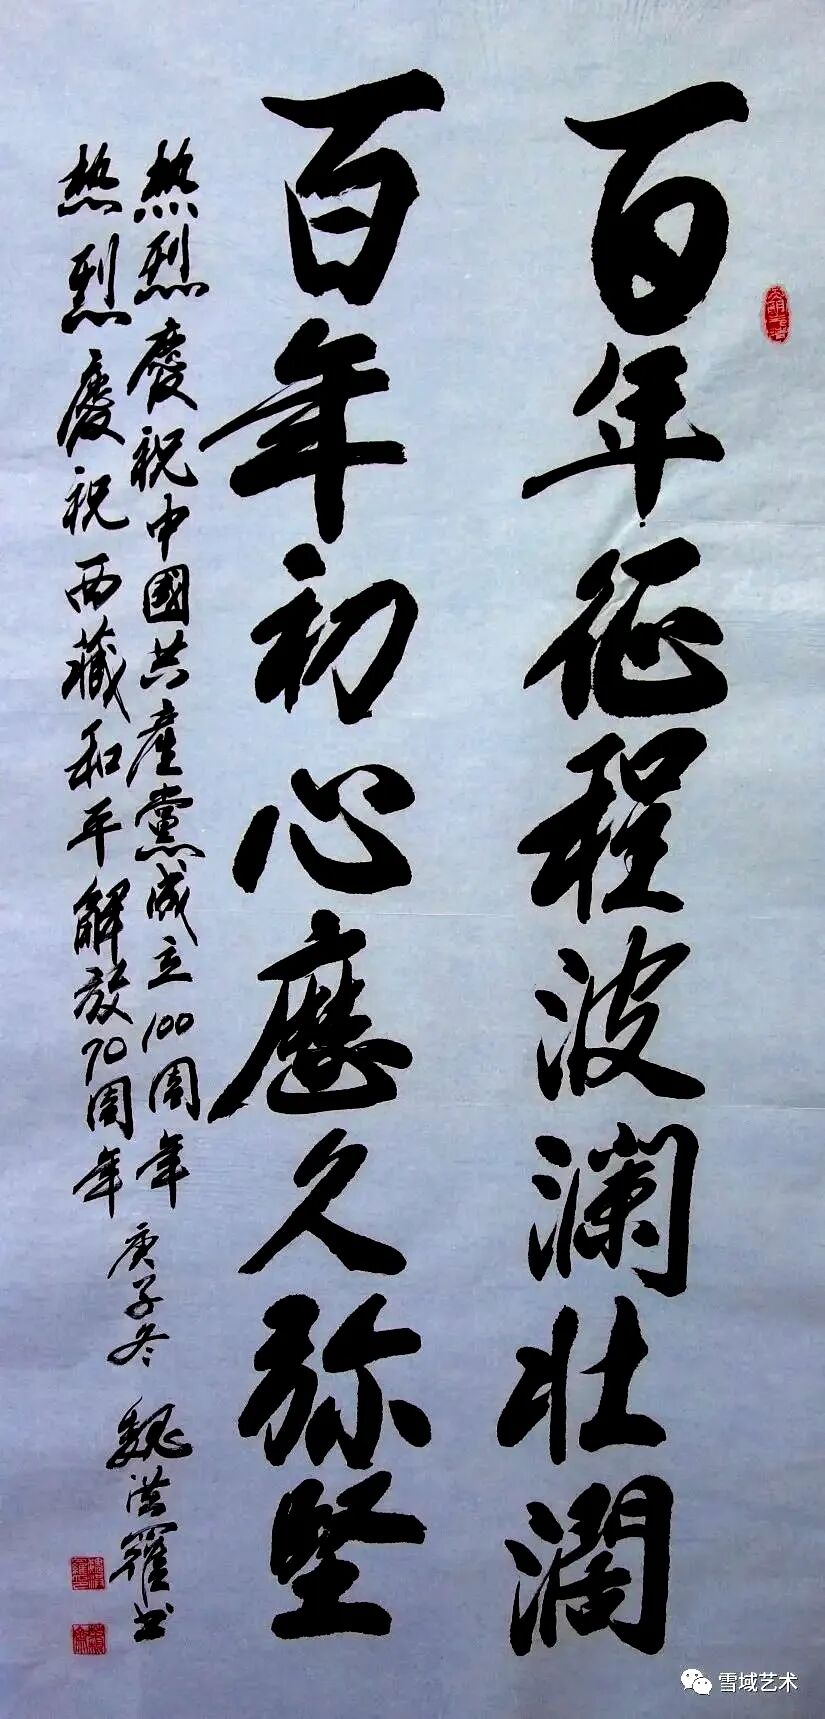 百年征程波澜壮濶
百年初心歷久弥堅
热烈慶祝中國共產黨成立100周年
热烈慶祝西藏和平解放70周年
庚子冬 魏洪羅书
雪域艺术